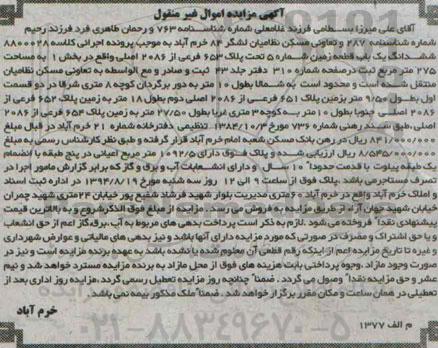 آگهی مزایده اموال غیر منقول
آقای علی میرزا بسطامی فرزند غلامعلی شماره شناسنامه ۷۶۳ و رحمان طاهری فرد فرزند رحیم
شماره شناسنامه ۲۸۷ و تعاونی مسکن نظامیان لشگر ۸۴ خرم آباد به موجب پرونده اجرائی کلاسه ۸۸۰۰۰۲۸
ششدانگ یک باب قطعه زمین شماره ۵ تحت پلاک ۶۵۳ فرعی از ۲۰۸۶ اصلی واقع در بخش ۱ به مساحت
۲۷۵ متر مربع ثبت در صفحه شماره ۳۱۰ دفتر جلد ۴۳ ثبت و صادر و مع الواسطه به تعاونی مسکن نظامیان
منتقل شده است و محدود است به شمالا بطول ۱۰ متر به دور برگردان کوچه ۸ متری شرقا در دو قسمت
اول بطول ۹/۵۰ متر بزمین پلاک ۶۵۱ فرعی از ۲۰۸۶ اصلی دوم بطول ۱۸ متر به زمین پلاک ۶۵۲ فرعی از
۲۰۸۶ اصلی جنوبا بطول ۱۰ متر به کوچه ۳ متری غربا بطول ۲۷/۵۰ متر به زمین پلاک ۶۵۴ فرعی از ۲۰۸۶
اصلی طبق سند رهنی شماره ۷۳۶ مورخ ۱۳۸۴/۱۰/۳ تنظیمی دفترخانه شماره ۲۱ خرم آباد در قبال مبلغ
ریال در رهن بانک مسکن شعبه امام خرم آباد قرار گرفته و طبق نظر کارشناس رسمی به مبلغ
ریال ارزیابی شده و پلاک فوق دارای متر مربع اعیانی در پنج طبقه با انضمام
یک طبقه پیلوت با قدمت حدوداً ۱۰ سال و دارای انشعابات آب و برق و گاز که برابر گزارش مامور اجرا در
تصرف مستاجر می باشد پلاک فوق از ساعت ۹ الی ۱۲ روز سه شنبه مورخ ۱۳۹۴/۸/۱۹ در اداره ثبت اسناد
و املاک خرم آباد واقع در خرم آباد ۶۰ متری مدیریت بلوار شهید فرشاد ذبیح پور خیابان ۲۴ متری شهید چمران
خیابان شهید جهان آرا از طریق مزایده به فروش می رسد. مزایده از مبلغ فوق الذکر شروع و به بالاترین قیمت
پیشنهادی نقداً فروخته می شود. لازم به ذکر است پرداخت بدهی های مربوط به آب، برق، گاز اعم از حق انشعاب
و یا حق اشتراک و مصرف در صورتی که مورد مزایده دارای آنها باشد و نیز بدهی های مالیاتی و عوارض شهرداری
و غیره تا تاریخ مزایده اعم از اینکه رقم قطعی آن معلوم شده یا نشده باشد به عهده برنده مزایده است و نیز در
صورت وجود مازاد، وجوه پرداختی بابت هزینه های فوق از محل مازاد به برنده مزایده مسترد خواهد شد و نیم
عشر و حق مزایده نقداً وصول می گردد. ضمناً چنانچه روز مزایده تعطیل رسمی گردد، مزایده روز اداری بعد از
تعطیلی در همان ساعت و مکان مقرر برگزار خواهد شد. ضمناً ملک مذکور بیمه نمی باشد.
خرم آباد
م الف ۱۳۷۷
۰۲۱-۸۸۳۴۹۶۷۰-۵